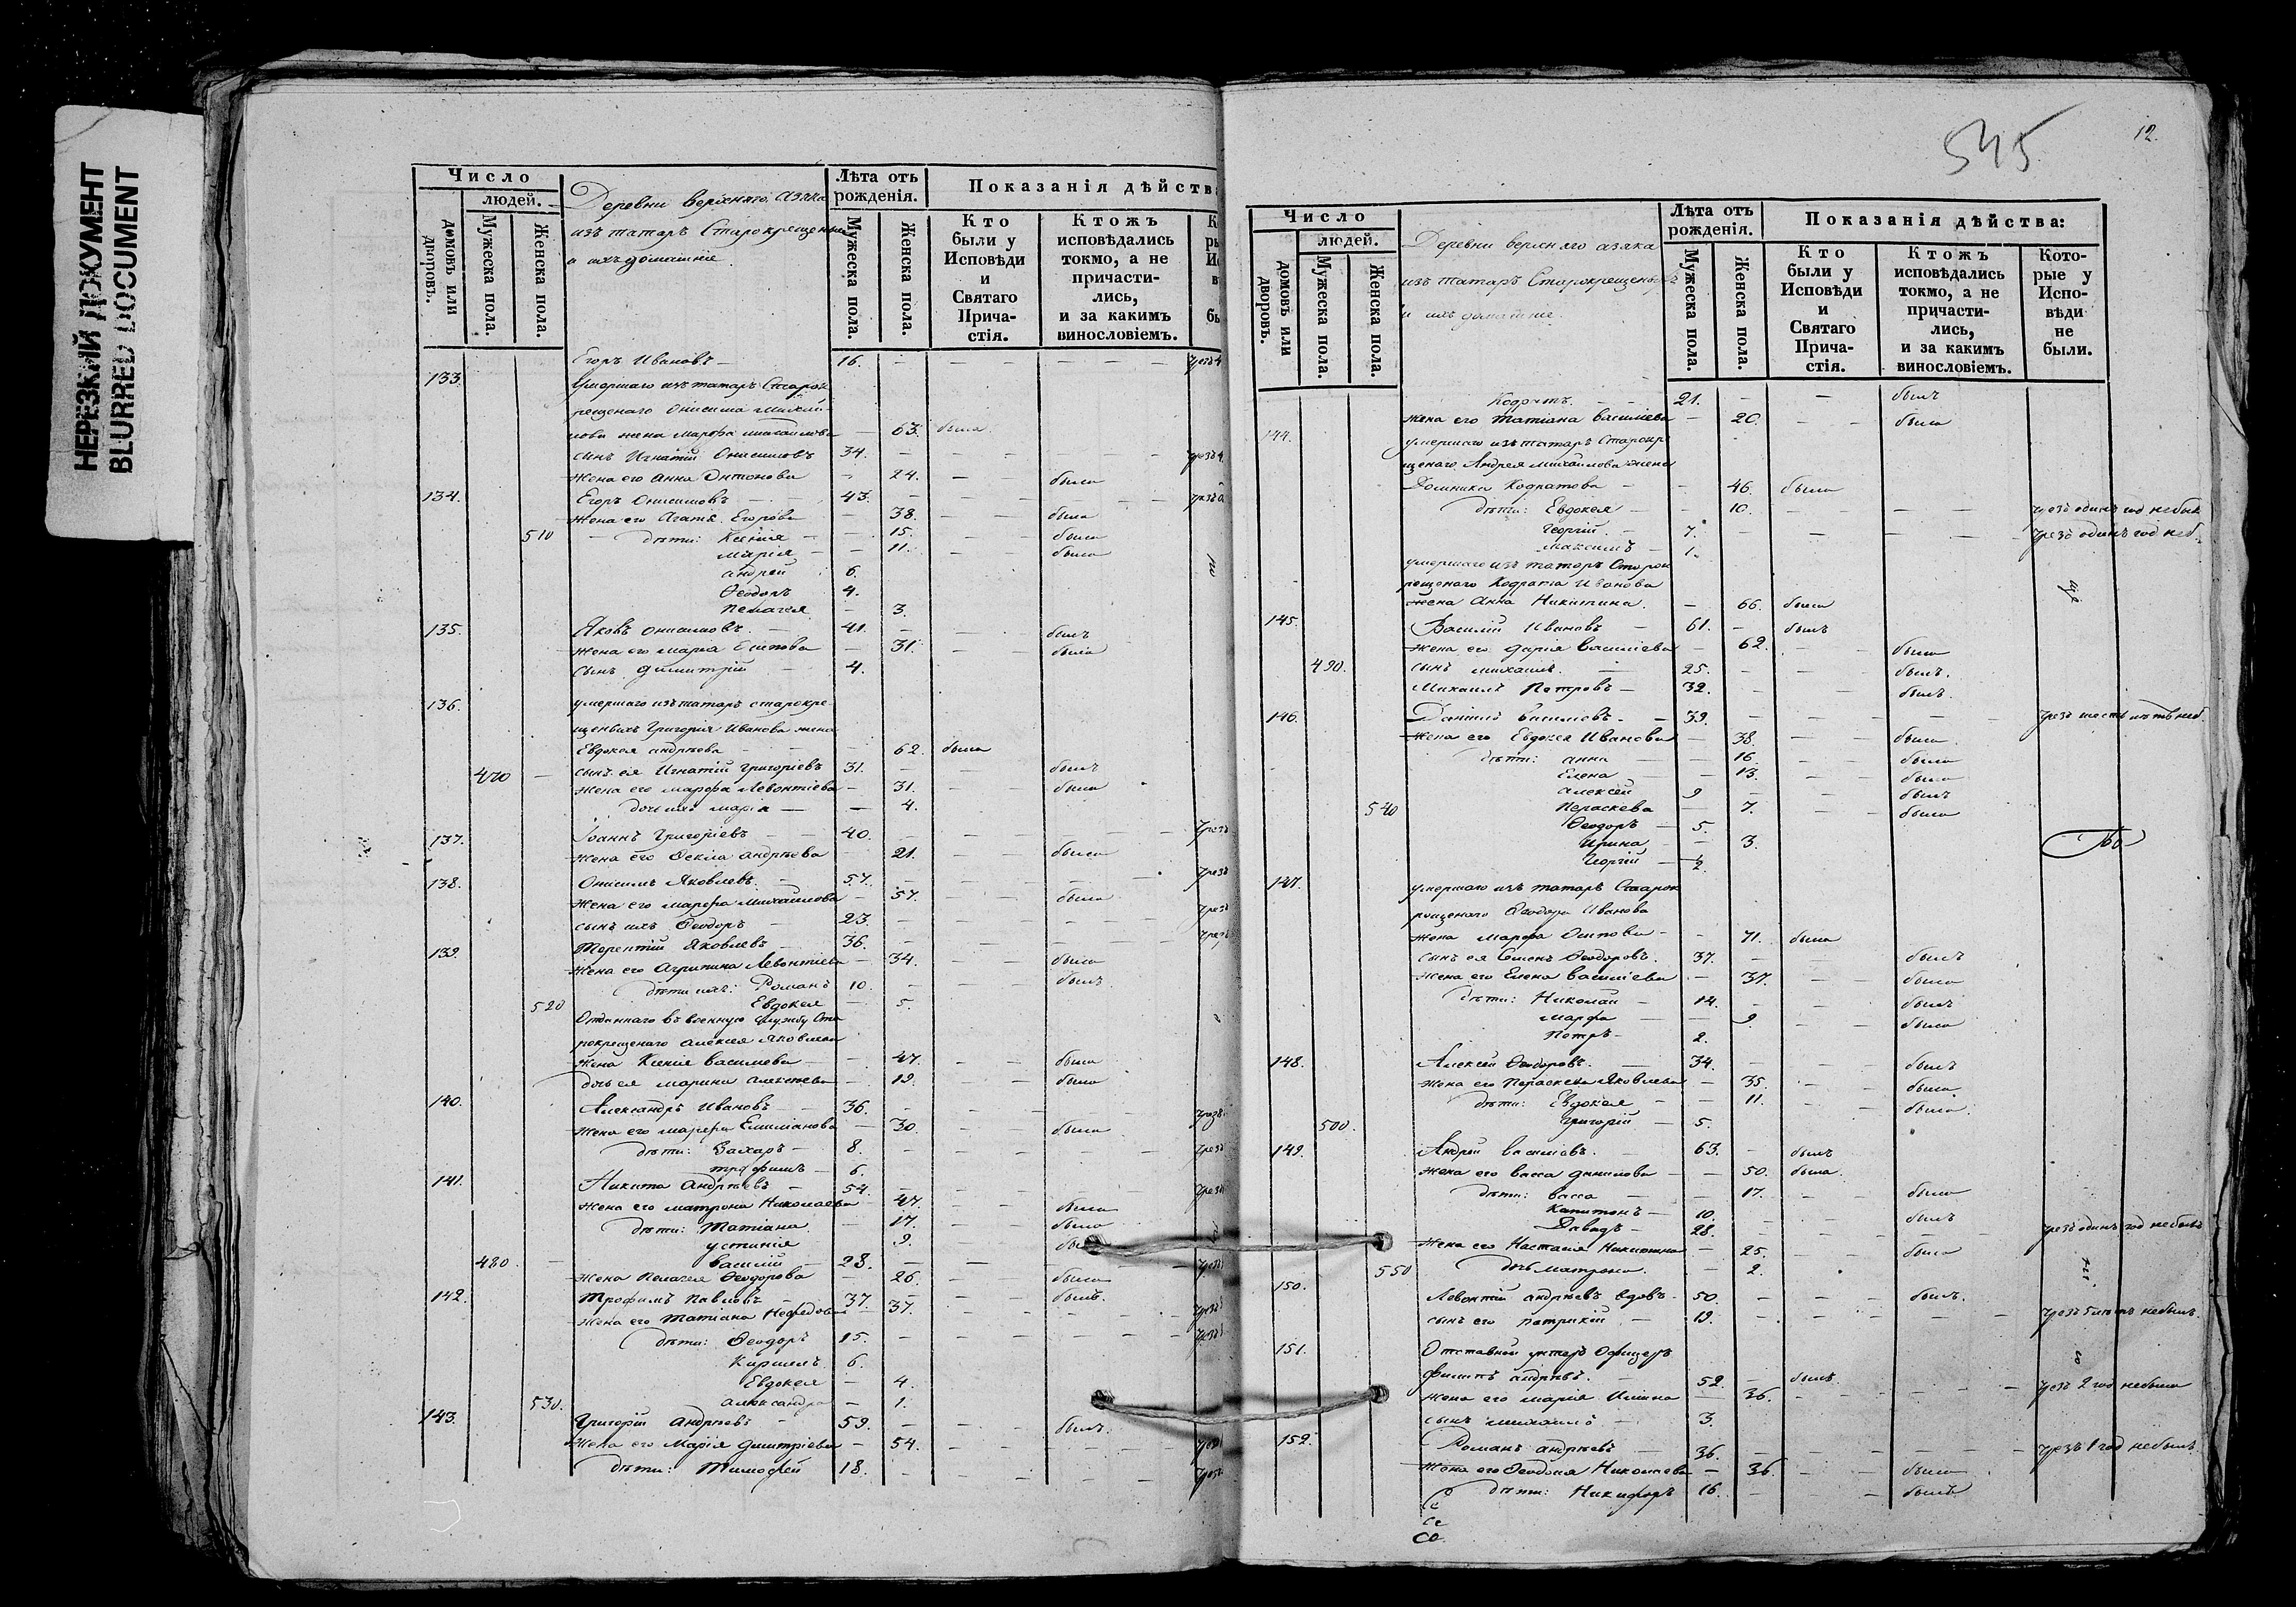 НЕРЕЗКИЙ ДОКУМЕНТ
BLURRED DOCUMENT
Число
людей.
домовъ или дворовъ.
Мужеска пола.
Женска пола.
Деревни верхняго Азяка
изъ татаръ Старокрещеныя
и ихъ домашніе
Лѣта отъ рожденія.
Мужеска пола.
Женска пола.
Показанія дѣйства
Кто были у Исповѣди и Святаго Прича-стія.
Ктожъ исповѣдались токмо, а не причасти-лись, и за какимъ винословіемъ.
Егоръ Ивановъ 16.
133. умершаго изъ татаръ Старок
рещенаго Онисима Михай
лова жена Марфа Михайлова 63. была
сынъ Игнатій Онисимовъ 34.
жена его Анна Антонова 24. была
134. Егоръ Онисимовъ 43.
жена его Агапія Егорова 38. была
510 дѣти: Ксенія 15. была
Марія 11. была
Андрей 6.
Ѳеодоръ 4.
Пелагея 3.
135. Яковъ Онисимовъ 41. былъ
жена его Марія Осипова 31. была
сынъ Димитрій 4.
136. умершаго изъ татаръ старокре
щеныхъ Григорія Иванова жена
Евдокея Андрѣева 62. была
470 сынъ ея Игнатій Григоріевъ 31. былъ
жена его Марфа Левонтіева 31. была
дочь ихъ Марія 4.
137. Іоаннъ Григоріевъ 40.
жена его Ѳекла Андрѣева 21. была
138. Онисимъ Яковлевъ 57.
жена его Марфа Михайлова 57. была
сынъ ихъ Ѳеодоръ 23.
139. Терентій Яковлевъ 36.
жена его Агрипина Левонтіева 34. была
дѣти ихъ: Романъ 10. былъ
520 Евдокея 5.
Отданнаго въ военную службу Ста
рокрещенаго Алексея Яковлева
жена Ксенія Васильева 47. была
дочь ея Марина Алексѣева 19. была
140. Александръ Ивановъ 36.
жена его Марфа Емиліанова 30. была
дѣти: Захаръ 8.
Трофимъ 6.
141. Никита Андрѣевъ 54.
жена его Матрона Николаева 47. была
дѣти: Татіана 17. была
Устинія 9.
480 Василій 28.
жена Пелагея Ѳеодорова 26. была
142. Трофимъ Павловъ 37. былъ.
жена его Татіана Нефедова 37.
дѣти: Ѳеодоръ 15.
Кирилъ 6.
Евдокея 4.
530. Александра 1.
143. Григорій Андрѣевъ 59. былъ.
жена его Марія Димитріева 54.
дѣти: Тимофей 18.
545
12.
Число
людей.
домовъ или дворовъ.
Мужеска пола.
Женска пола.
Деревни верхняго азяка
изъ татаръ Старокрещеныя
и ихъ домашніе
Лѣта отъ рожденія.
Мужеска пола.
Женска пола.
Показанія дѣйства:
Кто были у Исповѣди и Святаго Прича-стія.
Ктожъ исповѣдались токмо, а не причасти-лись, и за какимъ винословіемъ.
Кото-рые у Испо-вѣди не были.
Кодратъ 21. былъ
жена его Татіана Васильева 20. была
144. умершаго изъ татаръ Старокр
щенаго Андрея Михайлова жена
Домника Кодратова 46. была
дѣти: Евдокея 10. чрезъ одинъ год небыл
Георгій 7. чрезъ одинъ год неб.
Максимъ 1.
умершаго изъ татаръ Старок
рещенаго Кодрата Иванова
жена Анна Никитина. 66. была
145. Василій Ивановъ 61. былъ
жена его Дарія Васильева 62. была
490. сынъ Михаилъ 25. былъ.
Михаилъ Петровъ 32. былъ.
146. Даніилъ Васильевъ 39. чрезъ шесть лѣтъ неб.
жена его Евдокея Иванова 38. была.
дѣти: Анна 16. была
Елена 13. была
Алексей 9 былъ
540 Параскева 7. была
Ѳеодоръ 5.
Ирина 3.
Георгій 1/2.
147. умершаго изъ татаръ Старок
рещенаго Ѳеодора Иванова
жена Марфа Осипова 71. была
сынъ ея Семенъ Ѳеодоровъ. 37. былъ
жена его Елена Васильева 37. была
дѣти: Николай 14. былъ
Марфа 9. была
Петръ 2.
148. Алексей Ѳеодоровъ. 34. былъ
жена его Параскева Яковлева 35. была
дѣти: Евдокея 11. была.
500. Григорій 5.
149. Андрей Васильевъ 63. былъ
жена его Васса Данилова 50. была.
дѣти: Васса 17. была
Капитонъ 10. былъ
Давидъ 28. чрезъ одинъ год небылъ
жена его Настасія Никитина 25. была
550 дочь Матрона. 2.
150. Левонтій Андрѣевъ вдовъ 50. былъ.
сынъ его Патрикій 19. чрезъ 5 лѣтъ небылъ.
151. Отставной унтеръ Офицеръ
Филипъ Андрѣевъ. 52. былъ
жена его Марія Ильина 36. чрезъ 2 год небыла
сынъ Михаилъ 3.
152. Романъ Андрѣевъ 36. чрезъ 1 год небылъ
жена его Ѳеодосія Николаева 36. была
дѣти: Никифоръ 16. былъ